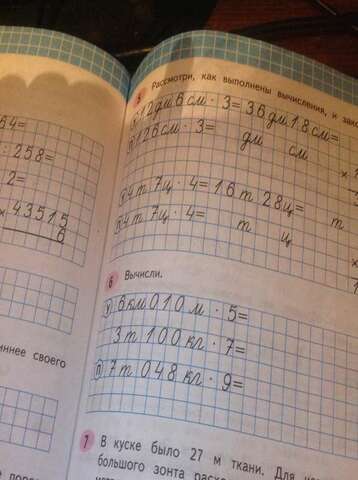 64=
: 258=
2=
× 43515
6
иннее своего
5 Рассмотри, как выполнены вычисления, и
12 дм 6 см · 3 = 36 дм 18 см =
126 см · 3 = дм см
4 т 7 ц · 4 = 16 т 28 ц = т
4 т 7 ц · 4 = т ц
6 Вычисли.
У 6 км 010 м · 5 =
3 т 100 кг · 7 =
П 7 т 048 кг · 9 =
7 В куске было 27 м ткани. Для
большого зонта